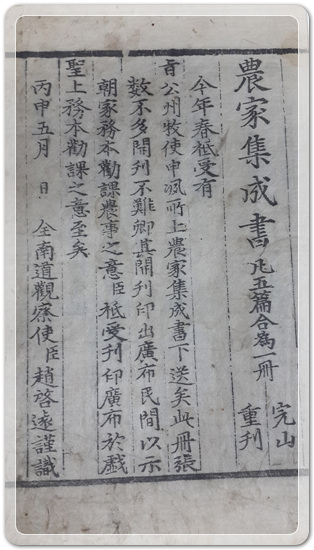 農家集成書 凡五篇合爲一冊 完山重刊
今年春祗受有
旨公州牧使申洬所上農家集成書下送矣此冊張
數不多開刊不難卿其開刊印出廣布民間以示
朝家務本勸課農事之意臣祗受刊印廣布於戲
聖上務本勸課之意至矣
丙申五月 日 全南道觀察使臣趙啓遠謹識